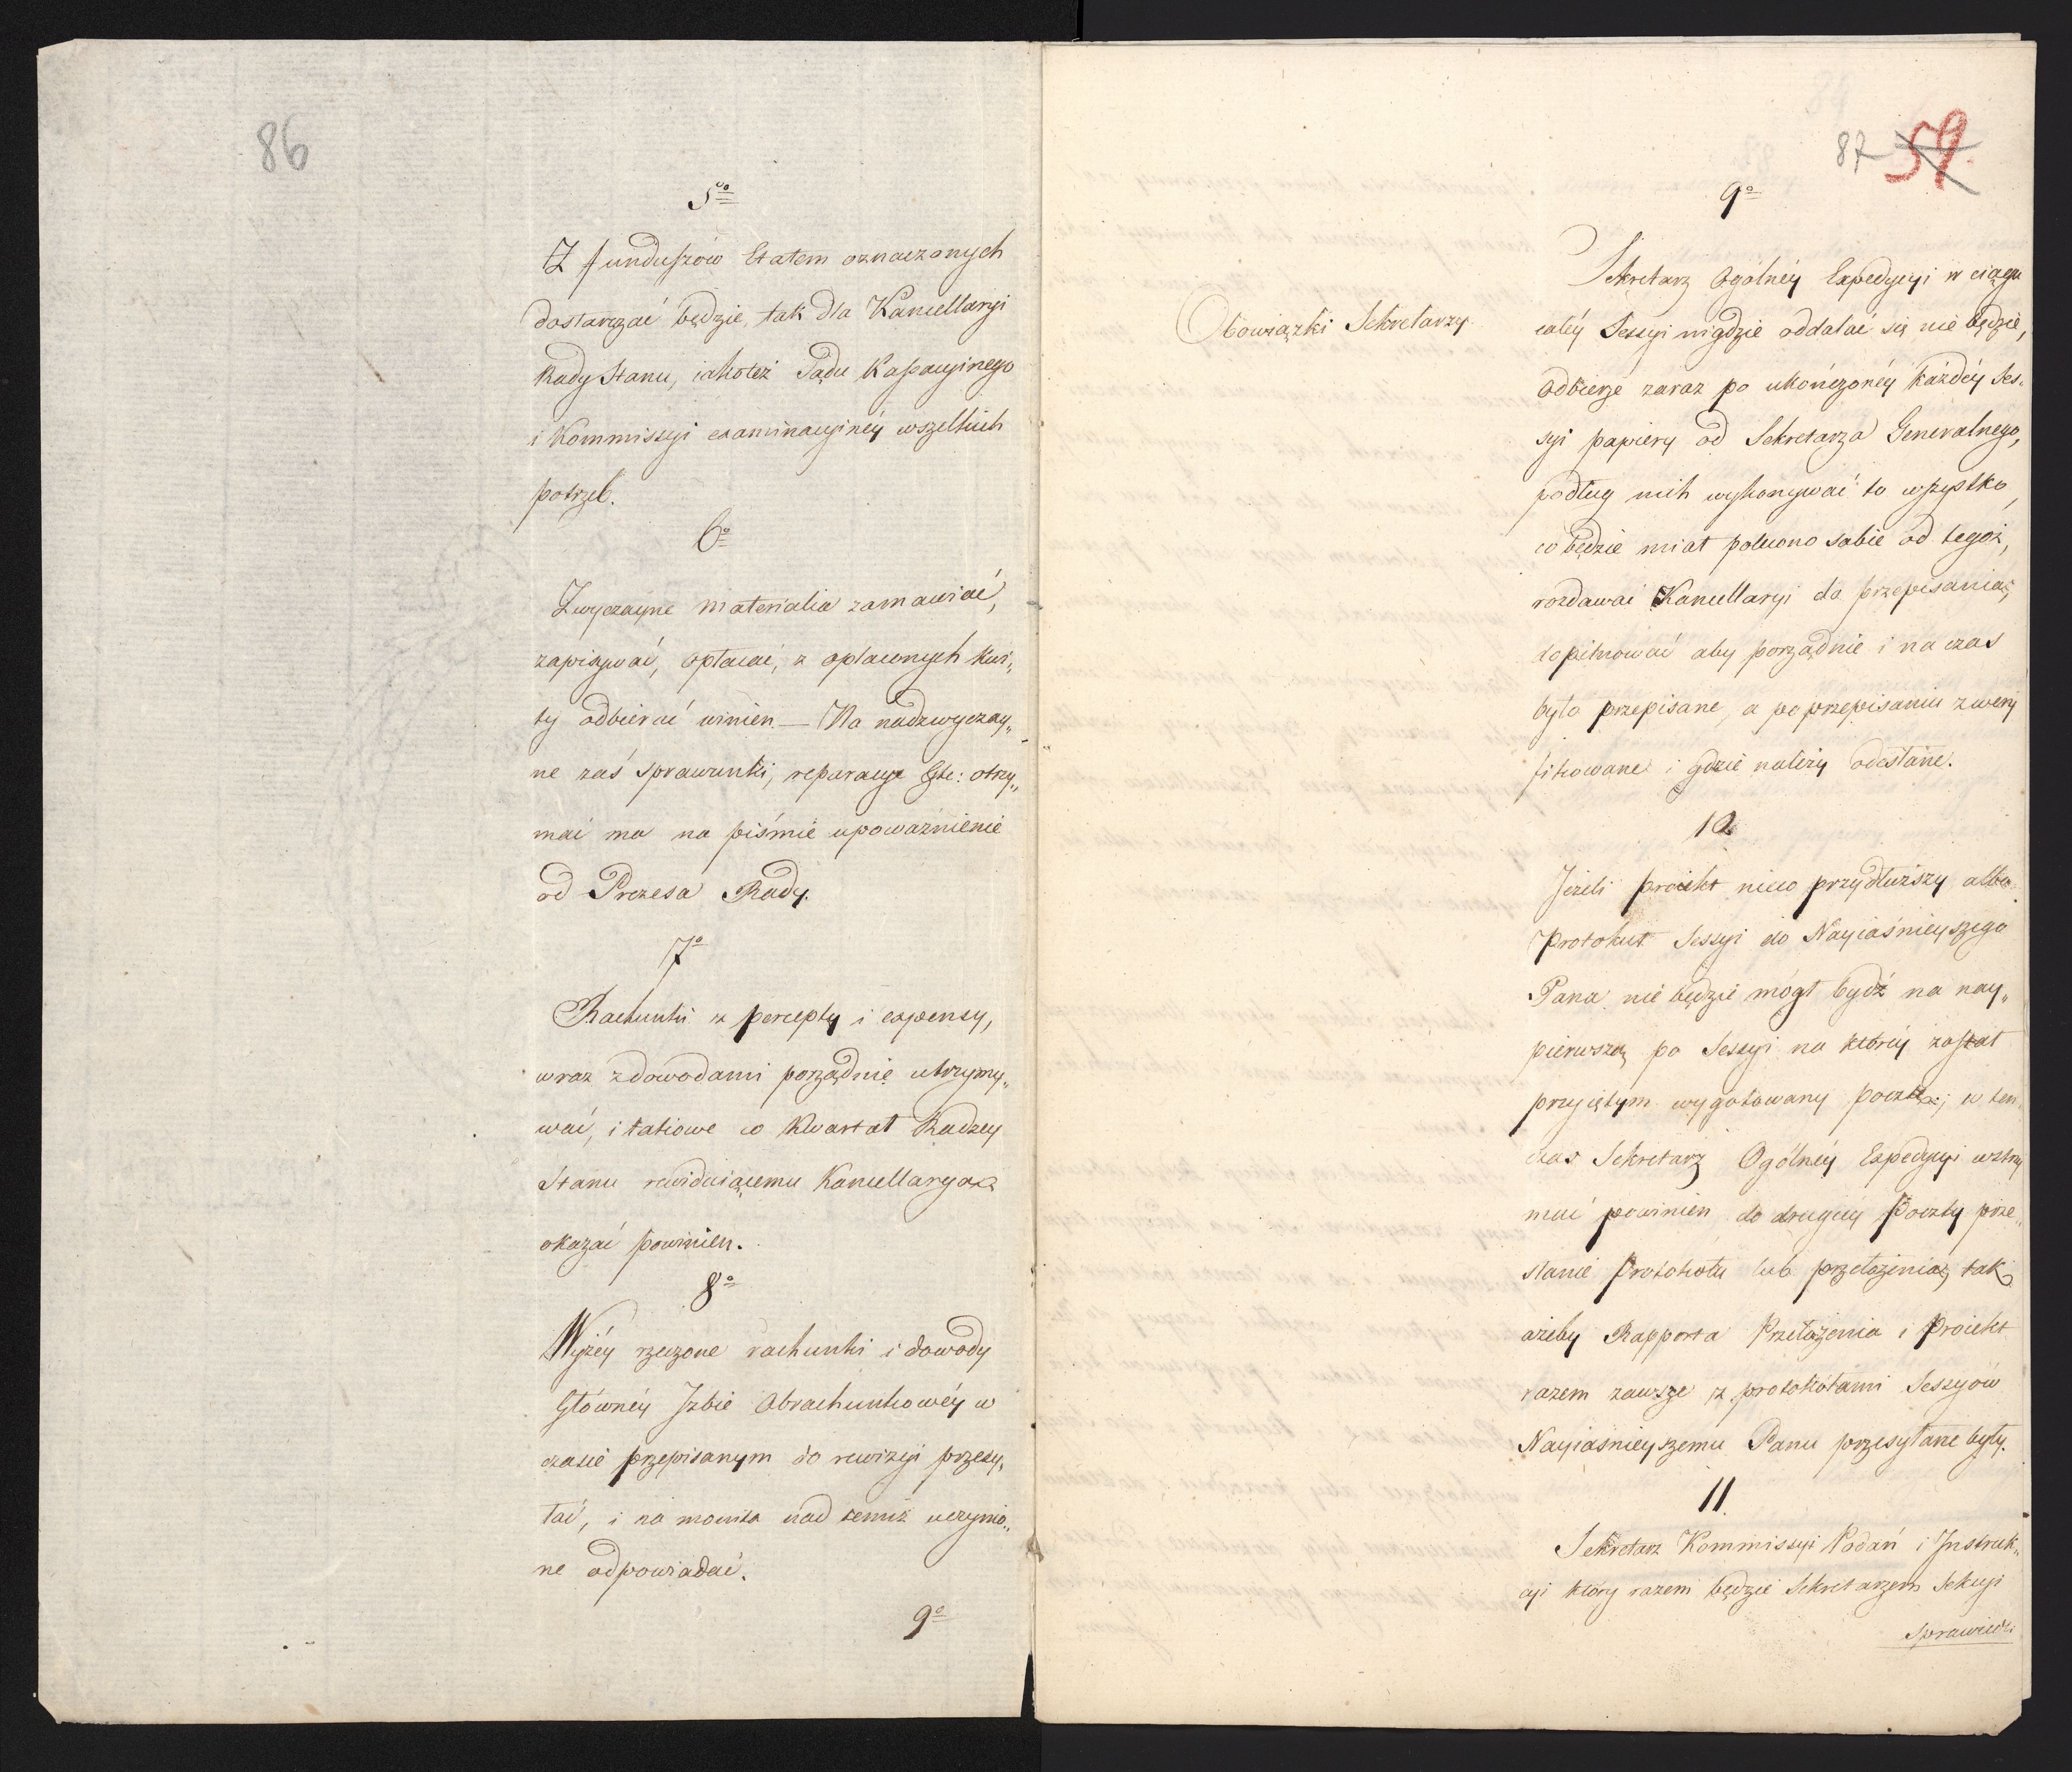 86
5to
Z funduszów Etatem oznaczonych
dostarczać będzie, tak dla Kancellaryi
Rady Stanu, iakoteż Sądu Kassacyinego
i Kommissyi examinacyinéy wszelkich
potrzeb.
6o
Zwyczayne materialia zamawiać,
zapisywać, opłacać, z opłaconych kwi„
ty odbierać winien — Na nadzwyczay„
ne zaś sprawunki, reparacye &tc: otrzy„
mać ma na piśmie upoważnienie
od Prezesa Rady.
7o
Rachunki z percepty i expensy,
wraz z dowodami porządnie utrzymy„
wać, i takowe co Kwartał Radzcy
Stanu rewiduiącemu Kancellaryą
okazać powinien.
8o
Wyżéy rzeczone rachunki i dowody
Głównéy Izbie Obrachunkowéy w
czasie przepisanym do rewizyi przesy„
łać, i na monita nad temiż uczynio„
ne odpowiadać.
9o
87 59.
9o
Obowiązki Sekretarzy.
Sekretarz Ogólnéy Expedycyi w ciągu
całéy Sessyi nigdzie oddalać się nie będzie,
odbierze zaraz po ukończonéy każdéy Ses„
syi papiery od Sekretarza Generalnego,
podług nich wykonywać to wszystko,
co będzie miał polecono sobie od tegoż,
rozdawać Kancellaryi do przepisania,
dopilnować aby porządnie i na czas
było przepisane, a po przepisaniu zwery
fikowane i gdzie należy odesłane.
10.
Jeżeli proiekt nieco przydłuższy albo
Protokuł Sessyi do Nayiaśnieyszego
Pana nie będzie mógł bydź na nay„
pierwszą po Sessyi na któréy został
przyiętym wygotowany pocztę; w ten„
czas Sekretarz Ogólnéy Expedycyi wstrzy
mać powinien do drugiéy Poczty prze„
słanie Protokołu lub przełożenia, tak
ażeby Rapporta Przełożenia i Proiekt
razem zawsze z protokółami Sessyów
Nayiaśnieyszemu Panu przesyłane były.
11.
Sekretarz Kommissyi Podań i Instruk„
cyi który razem będzie Sekretarzem Sekcyi
Sprawiedli